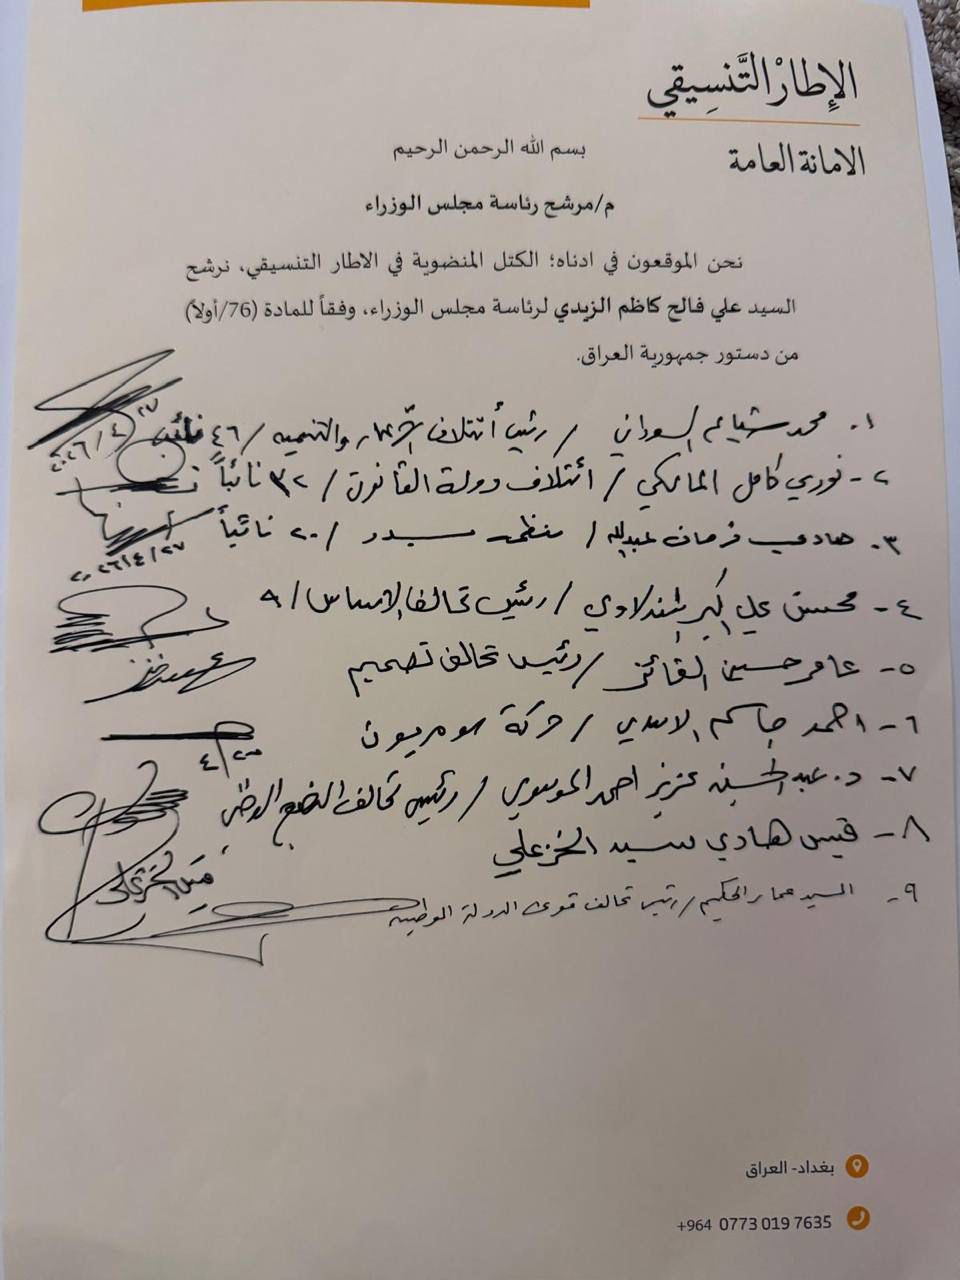 الإطار التَّنسِيقي
الامانة العامة
بسم الله الرحمن الرحيم
م/مرشح رئاسة مجلس الوزراء
نحن الموقعون في ادناه؛ الكتل المنضوية في الاطار التنسيقي، نرشح
السيد علي فالح كاظم الزيدي لرئاسة مجلس الوزراء، وفقاً للمادة (76/أولاً)
من دستور جمهورية العراق.
١. محمد شياع السوداني / رئيس أئتلاف الإعمار والتنمية / ٤٦ نائب
٢٠٢٦/٤/٢٧
٢- نوري كامل المالكي / أئتلاف دولة القانون / ٣٢ نائباً
٣. هادي فرحان عبدالله / منظمة بدر / ٢٠ نائباً
٢٠٢٦/٤/٢٧
٤- محسن علي اكبر المندلاوي / رئيس تحالف الاساس / ٩
٥- عامر حسين الفائز / رئيس تحالف تصميم
٦- احمد جاسم الاسدي / حركة سومريون
٧- د. عبد الحسين عزيز احمد الموسوي / رئيس تحالف النهج الوطني
٨- قيس هادي سيد الخزعلي
قيس الخزعلي
٩- السيد عمار الحكيم / رئيس تحالف قوى الدولة الوطنية
بغداد- العراق
+964 0773 019 7635